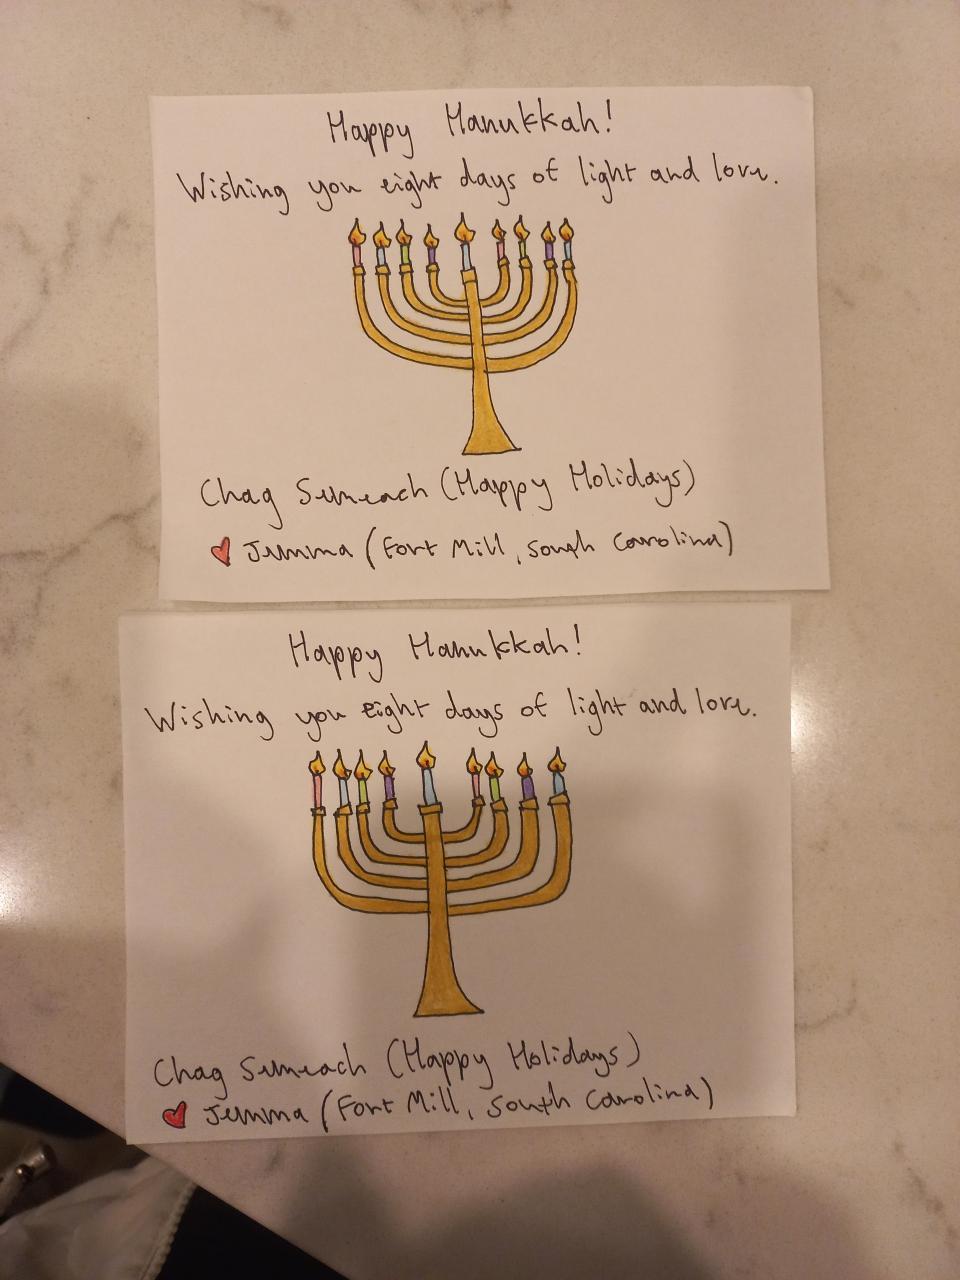 Happy Hanukkah!
Wishing you eight days of light and love.
Chag Sameach (Happy Holidays)
Jemma (Fort Mill, South Carolina)
Happy Hanukkah!
Wishing you eight days of light and love.
Chag Sameach (Happy Holidays)
Jemma (Fort Mill, South Carolina)